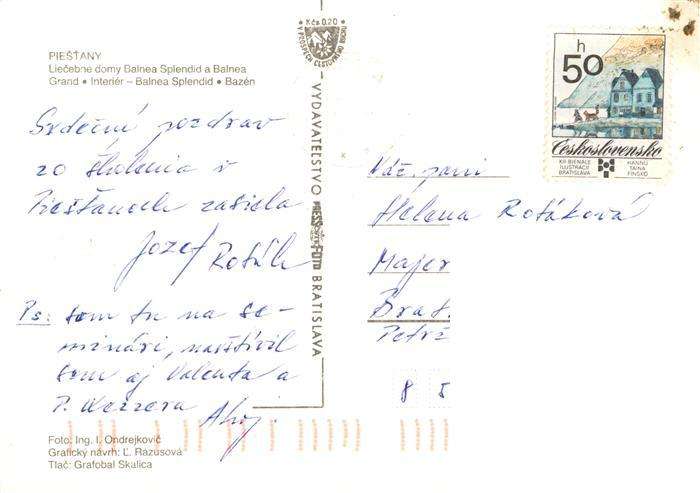 PIEŠŤANY
Liečebné domy Balnea Splendid a Balnea
Grand • Interiér – Balnea Splendid • Bazén
Srdečný pozdrav
zo školenia v
Piešťanoch zasiela
Jozef Roták
Ps: som tu na se-
minári, navštívil
som aj Valenta a
P.
Ahoj
Foto: Ing. I. Ondrejkovič
Grafický návrh: Ľ. Rázusová
Tlač: Grafobal Skalica
Kčs 0,20
V PROSPECH CESTOVNÉHO RUCHU
VYDAVATEĽSTVO PRESSFOTO BRATISLAVA
50 h
Československo
XII. BIENÁLE
ILUSTRÁCIÍ
BRATISLAVA
HANNU
TAINA
FÍNSKO
Váž. pani
Helena Rotáková
Majer
Brat.
Petrž
8 5